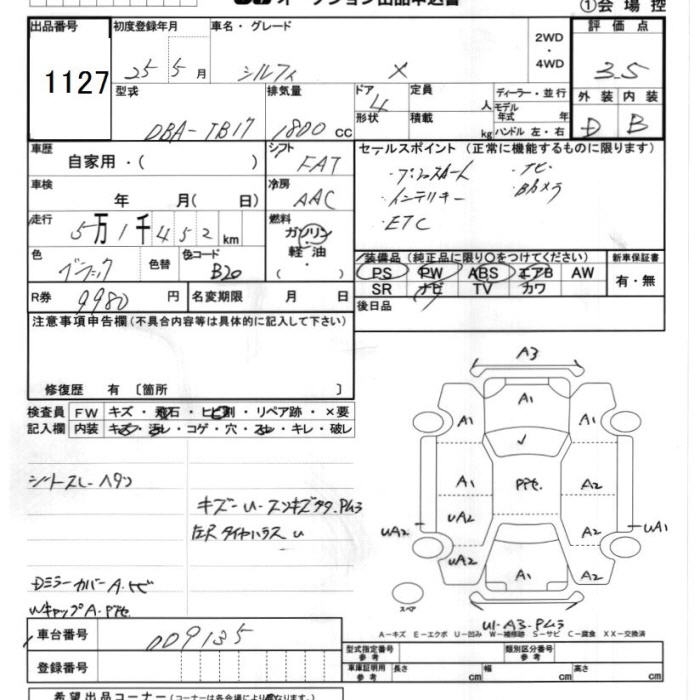 ①会場控
出品番号 1127
初度登録年月 25 5月
車名・グレード シルフィ X
2WD・4WD
評価点 3.5
型式 DBA-TB17
排気量 1800 CC
ドア 4 形状
定員 人
積載 kg
ディーラー・並行
モデル年式 年
ハンドル 左・右
外装 D 内装 B
車歴 自家用・( )
シフト FAT
セールスポイント (正常に機能するものに限ります)
・プッシュスタート ・ナビ
・インテリキー ・Bカメラ
・ETC
車検 年 月( 日)
冷房 AAC
走行 5万1千452km
燃料 ガソリン・軽油 ( ・ )
色 ブラック 色替 色コード B20
装備品 (純正品に限り○をつけてください) 新車保証書
PS PW ABS エアB AW 有・無
SR ナビ TV カワ
R券 9980円 名変期限 月 日
後日品
注意事項申告欄(不具合内容等は具体的に記入して下さい)
修復歴 有 〔箇所 〕
検査員 FW キズ・飛石・ヒビ割・リペア跡・×要
記入欄 内装 キズ・汚レ・コゲ・穴・スレ・キレ・破レ
シートスレ ヘタリ
左R タイヤハウス U
Dミラーカバー A・ヒビ
Wキャップ A・Pキセ
A3
A1
A1 A1
A1 Pキセ. A2
UA2 A2
UA2 UA1
UA2 A1 A2
スペア
U1-A3-Pムラ
A-キズ E-エクボ U-凹み W-補修跡 S-サビ C-腐食 XX-交換済
車台番号 009135
登録番号
型式指定番号 参考
類別区分番号
車庫証明用 参考 長さ cm 幅 cm 高さ cm
希望出品コーナー(コーナーは各会場により異なります。)